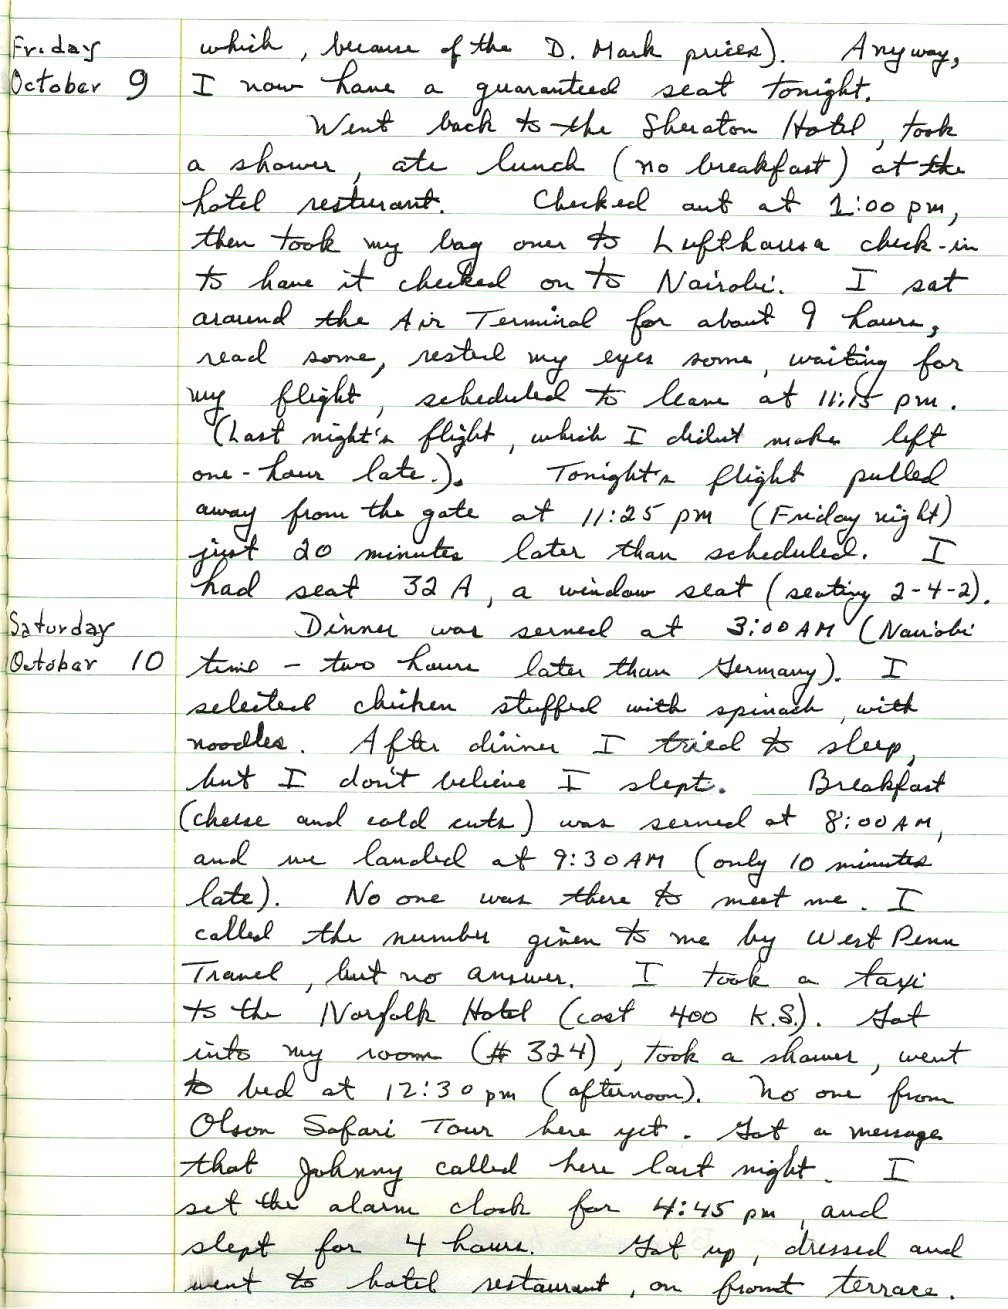 Friday which, because of the D. Mark prices). Anyway,
October 9 I now have a guaranteed seat tonight.
Went back to the Sheraton Hotel, took
a shower, ate lunch (no breakfast) at the
hotel resturant. Checked out at 1:00 pm,
then took my bag over to Lufthausa check-in
to have it checked on to Nairobi. I sat
around the Air Terminal for about 9 hours,
read some, rested my eyes some, waiting for
my flight, scheduled to leave at 11:15 pm.
(Last night's flight, which I didn't make left
one-hour late.). Tonight's flight pulled
away from the gate at 11:25 pm (Friday night)
just 20 minutes later than scheduled. I
had seat 32A, a window seat (seating 2-4-2).
Saturday Dinner was served at 3:00 AM (Nairobi
October 10 time - two hours later than Germany). I
selected chicken stuffed with spinach, with
noodles. After dinner I tried to sleep,
but I don't believe I slept. Breakfast
(cheese and cold cuts) was served at 8:00 AM,
and we landed at 9:30 AM (only 10 minutes
late). No one was there to meet me. I
called the number given to me by West Penn
Travel, but no answer. I took a taxi
to the Norfolk Hotel (cost 400 K.S.). Got
into my room (# 324), took a shower, went
to bed at 12:30 pm (afternoon). No one from
Olson Safari Tour here yet. Got a message
that Johnny called here last night. I
set the alarm clock for 4:45 pm, and
slept for 4 hours. Got up, dressed and
went to hotel restaurant, on front terrace.